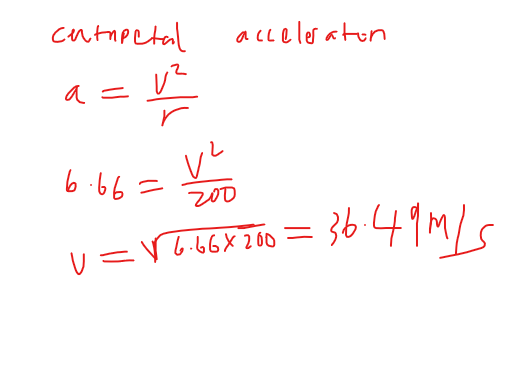 centripetal acceleration
a = v²/r
6.66 = v²/200
v = √6.66×200 = 36.49 m/s